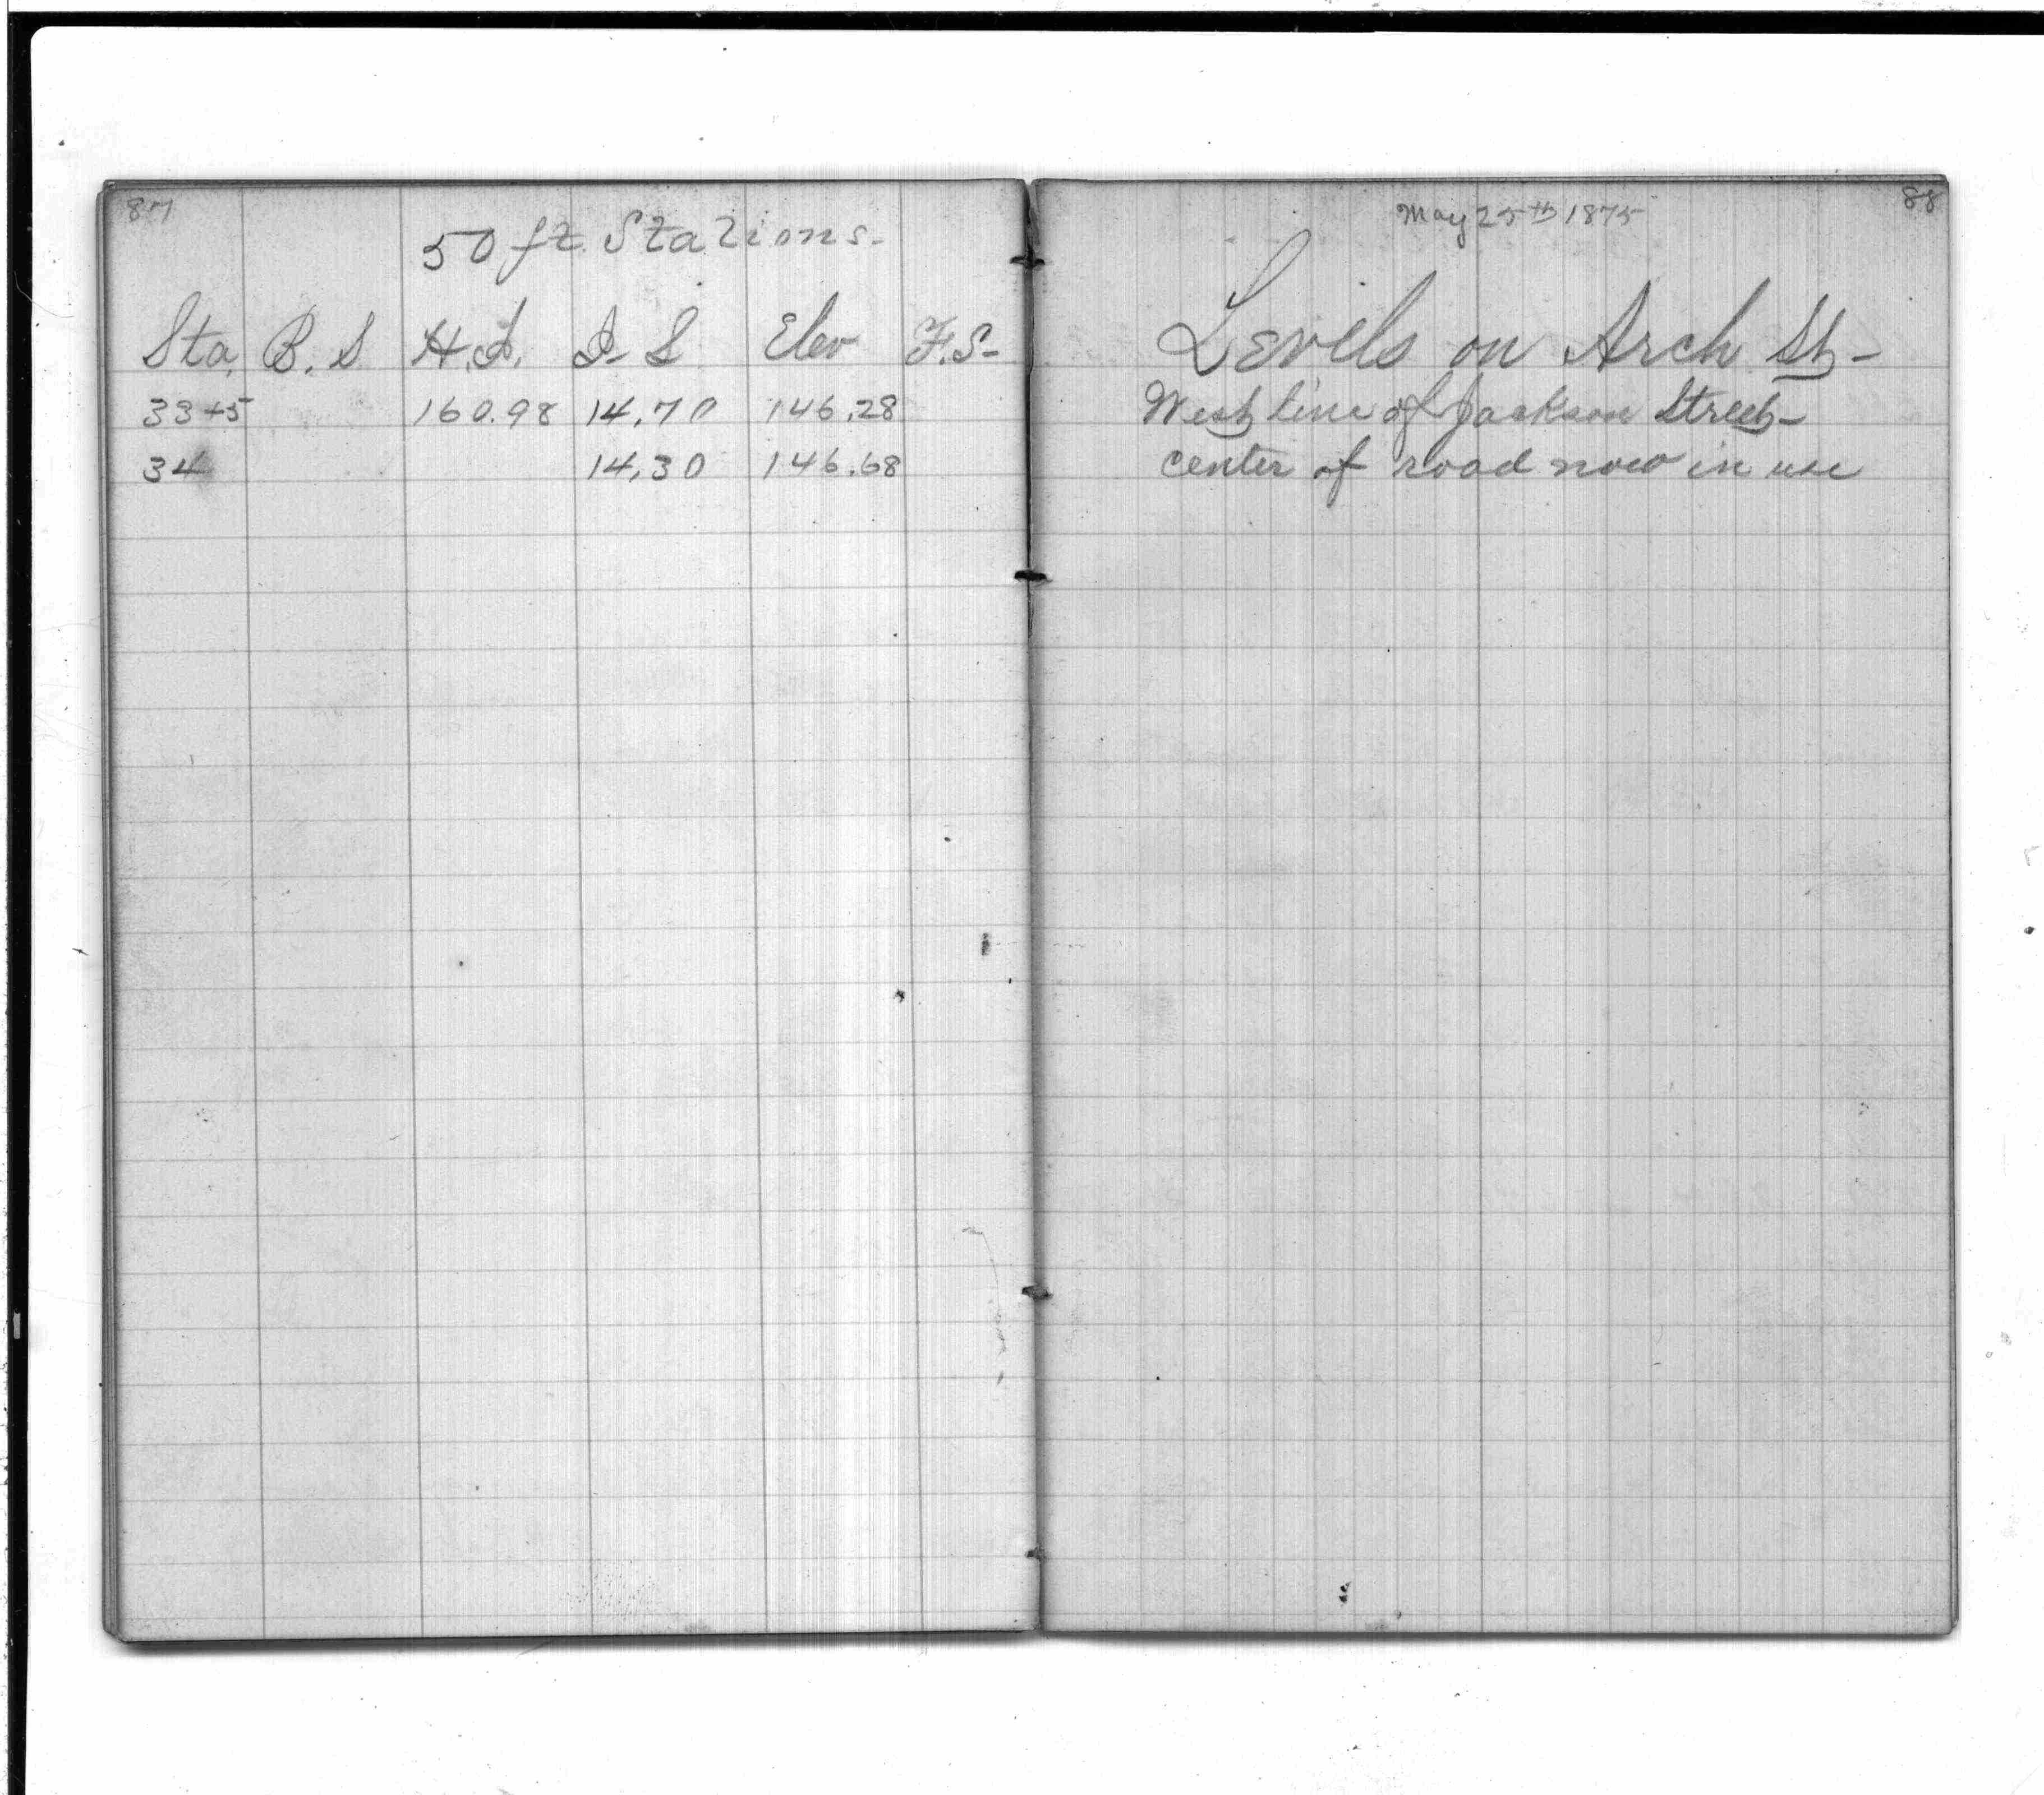 87
50 ft. Stations.
Sta. B. S H. I. I. S Elev F. S-
33+5 160.98 14.70 146.28
34 14.30 146.68
88
May 25th 1875
Levels on Arch St-
West line of Jackson Street-
center of road now in use